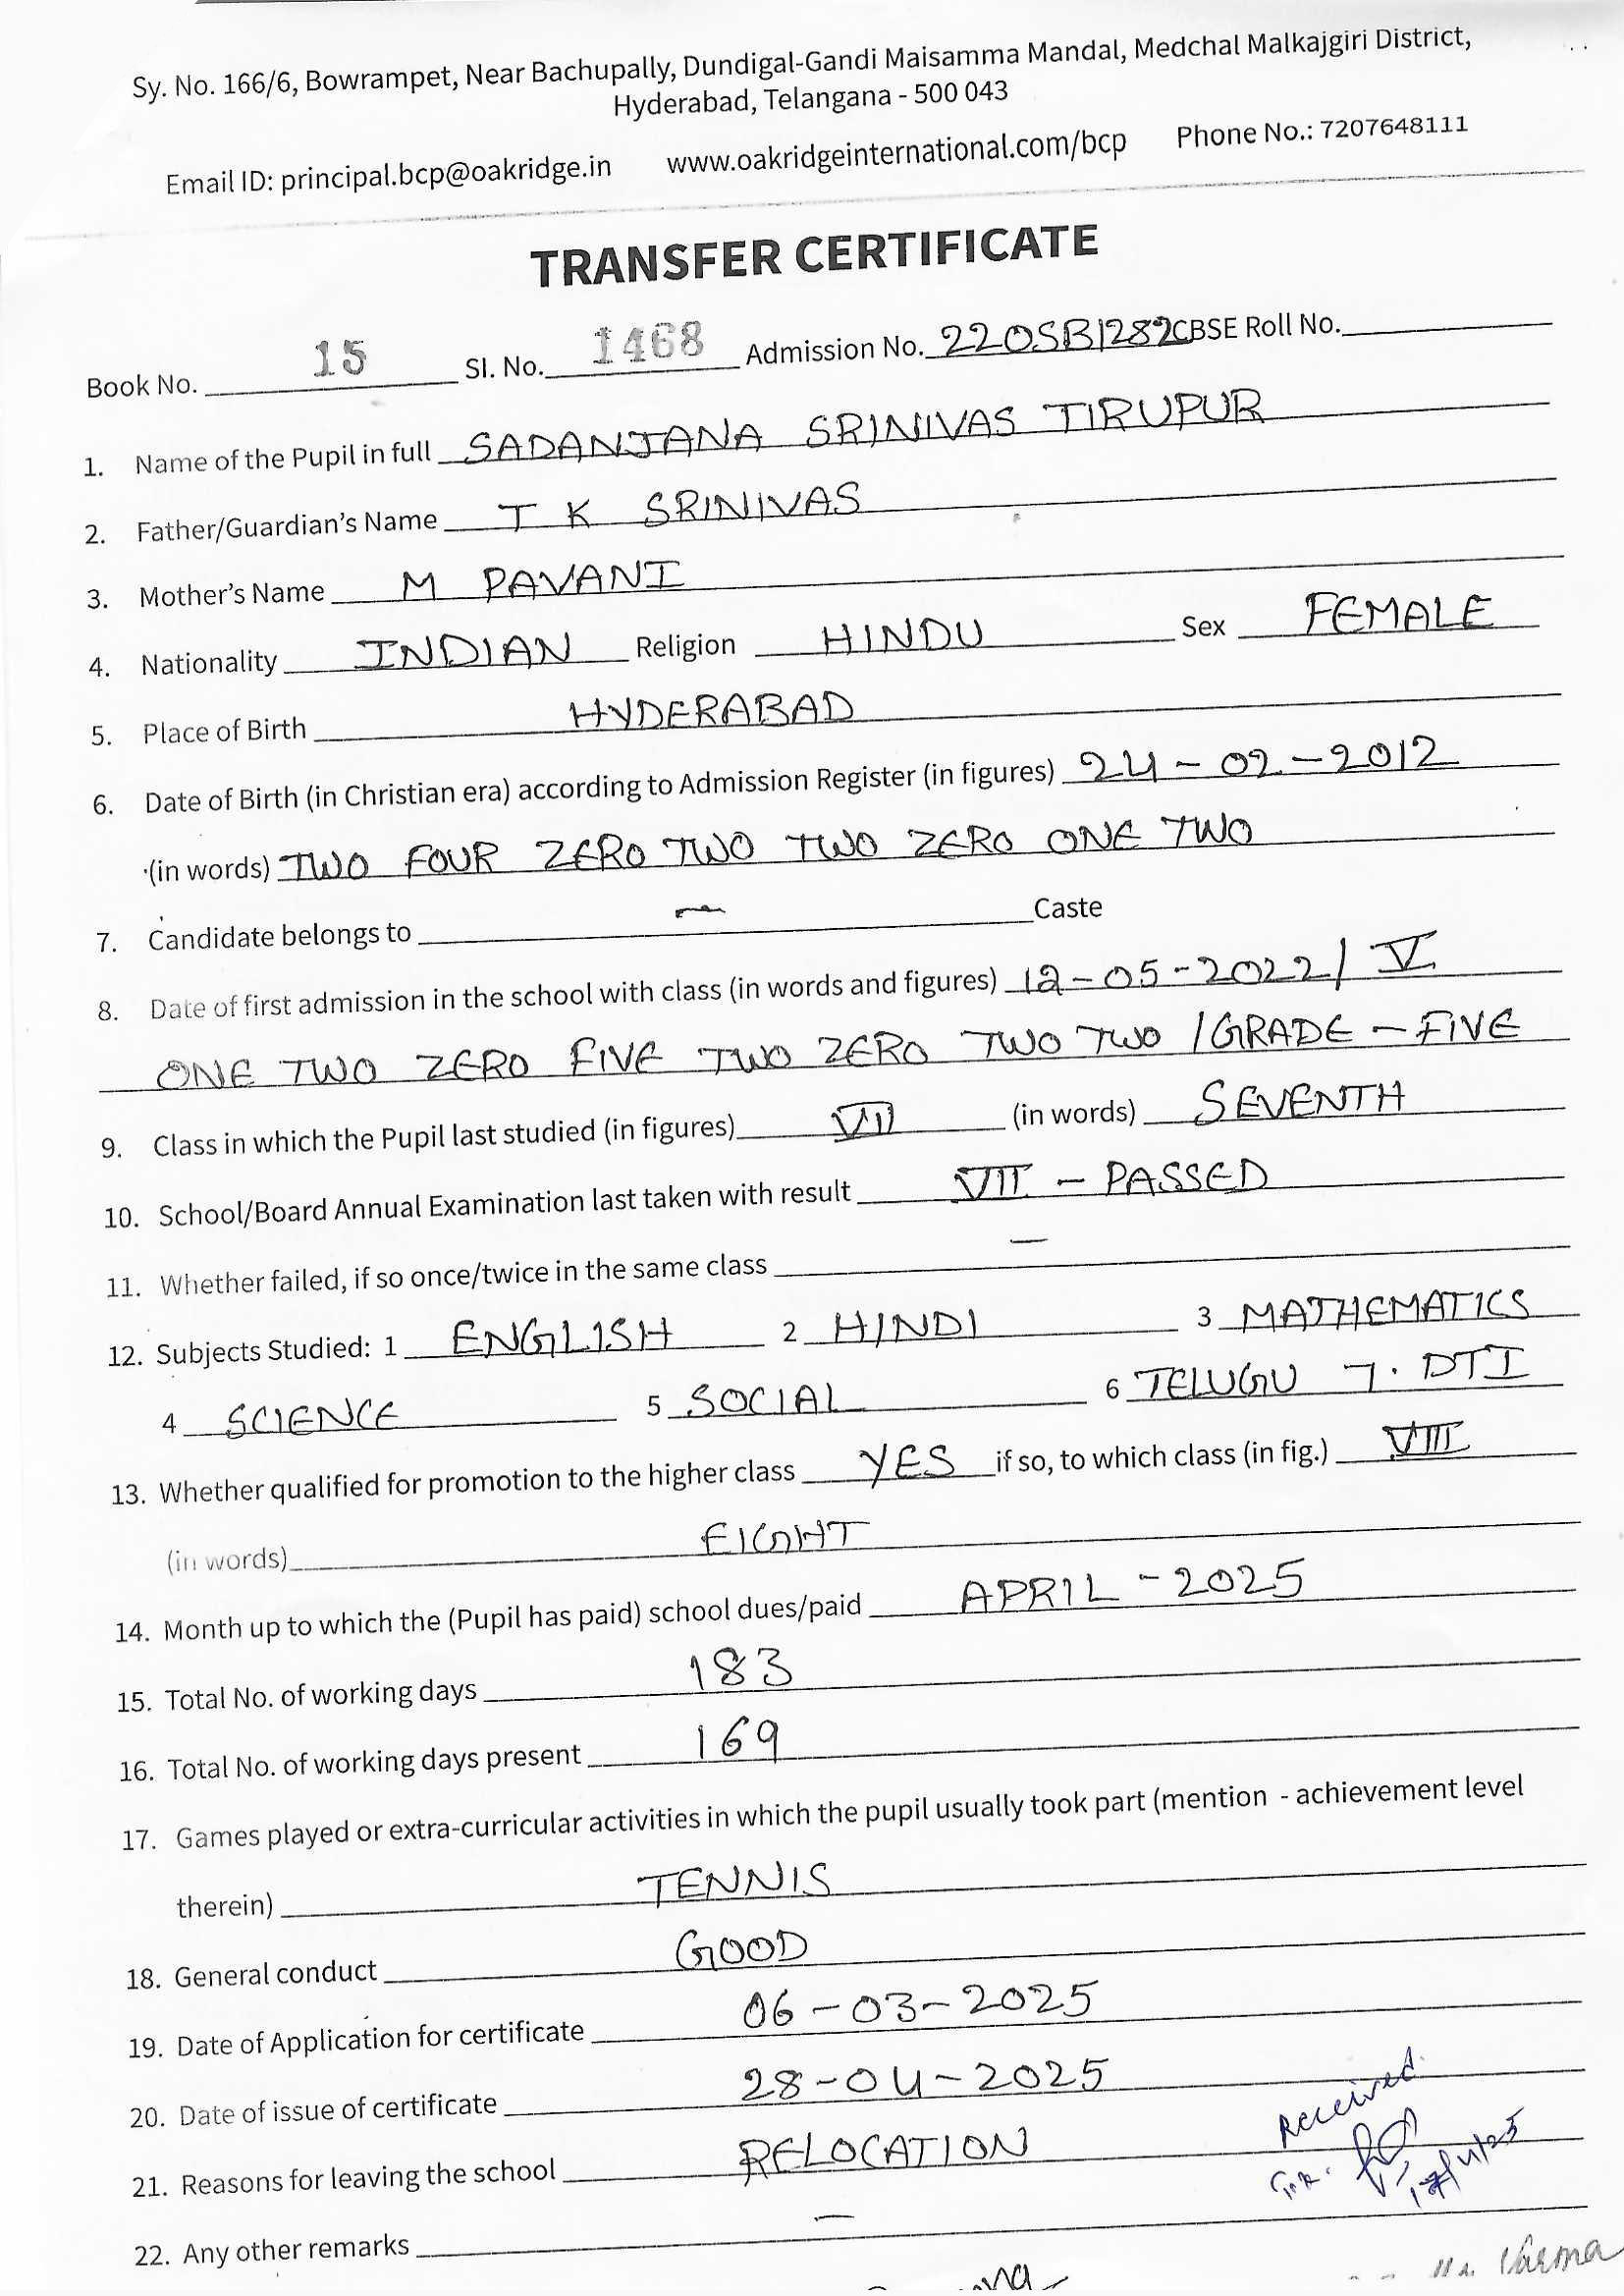 Sy. No. 166/6, Bowrampet, Near Bachupally, Dundigal-Gandi Maisamma Mandal, Medchal Malkajgiri District,
Hyderabad, Telangana - 500 043
Email ID: principal.bcp@oakridge.in www.oakridgeinternational.com/bcp Phone No.: 7207648111
TRANSFER CERTIFICATE
Book No. 15 Sl. No. 1468 Admission No. 22OSB1282 CBSE Roll No.
1. Name of the Pupil in full SADANJANA SRINIVAS TIRUPUR
2. Father/Guardian's Name T K SRINIVAS
3. Mother's Name M PAVANI
4. Nationality INDIAN Religion HINDU Sex FEMALE
5. Place of Birth HYDERABAD
6. Date of Birth (in Christian era) according to Admission Register (in figures) 24-02-2012
(in words) TWO FOUR ZERO TWO TWO ZERO ONE TWO
7. Candidate belongs to - Caste
8. Date of first admission in the school with class (in words and figures) 12-05-2022/ V
ONE TWO ZERO FIVE TWO ZERO TWO TWO /GRADE - FIVE
9. Class in which the Pupil last studied (in figures) VII (in words) SEVENTH
10. School/Board Annual Examination last taken with result VII - PASSED
11. Whether failed, if so once/twice in the same class -
12. Subjects Studied: 1 ENGLISH 2 HINDI 3 MATHEMATICS
4 SCIENCE 5 SOCIAL 6 TELUGU 7. DTI
13. Whether qualified for promotion to the higher class YES if so, to which class (in fig.) VIII
(in words) EIGHT
14. Month up to which the (Pupil has paid) school dues/paid APRIL - 2025
15. Total No. of working days 183
16. Total No. of working days present 169
17. Games played or extra-curricular activities in which the pupil usually took part (mention - achievement level
therein) TENNIS
18. General conduct GOOD
19. Date of Application for certificate 06-03-2025
20. Date of issue of certificate 28-04-2025
Received
21. Reasons for leaving the school RELOCATION
22. Any other remarks -
Varma